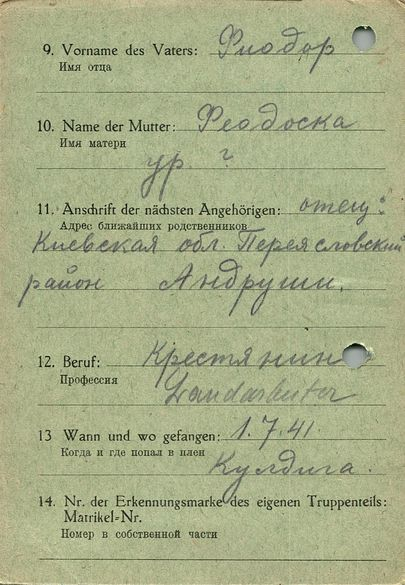 9. Vorname des Vaters: Фиодор
Имя отца
10. Name der Mutter: Феодоска
Имя матери
ур. ?
11. Anschrift der nächsten Angehörigen: отец:
Адрес ближайших родственников
Киевская обл. Переясловский
район Андруши.
12. Beruf: Крестянин
Профессия
Landarbeiter
13 Wann und wo gefangen: 1.7.41.
Когда и где попал в плен
Кулдига.
14. Nr. der Erkennungsmarke des eigenen Truppenteils:
Matrikel-Nr.
Номер в собственной части